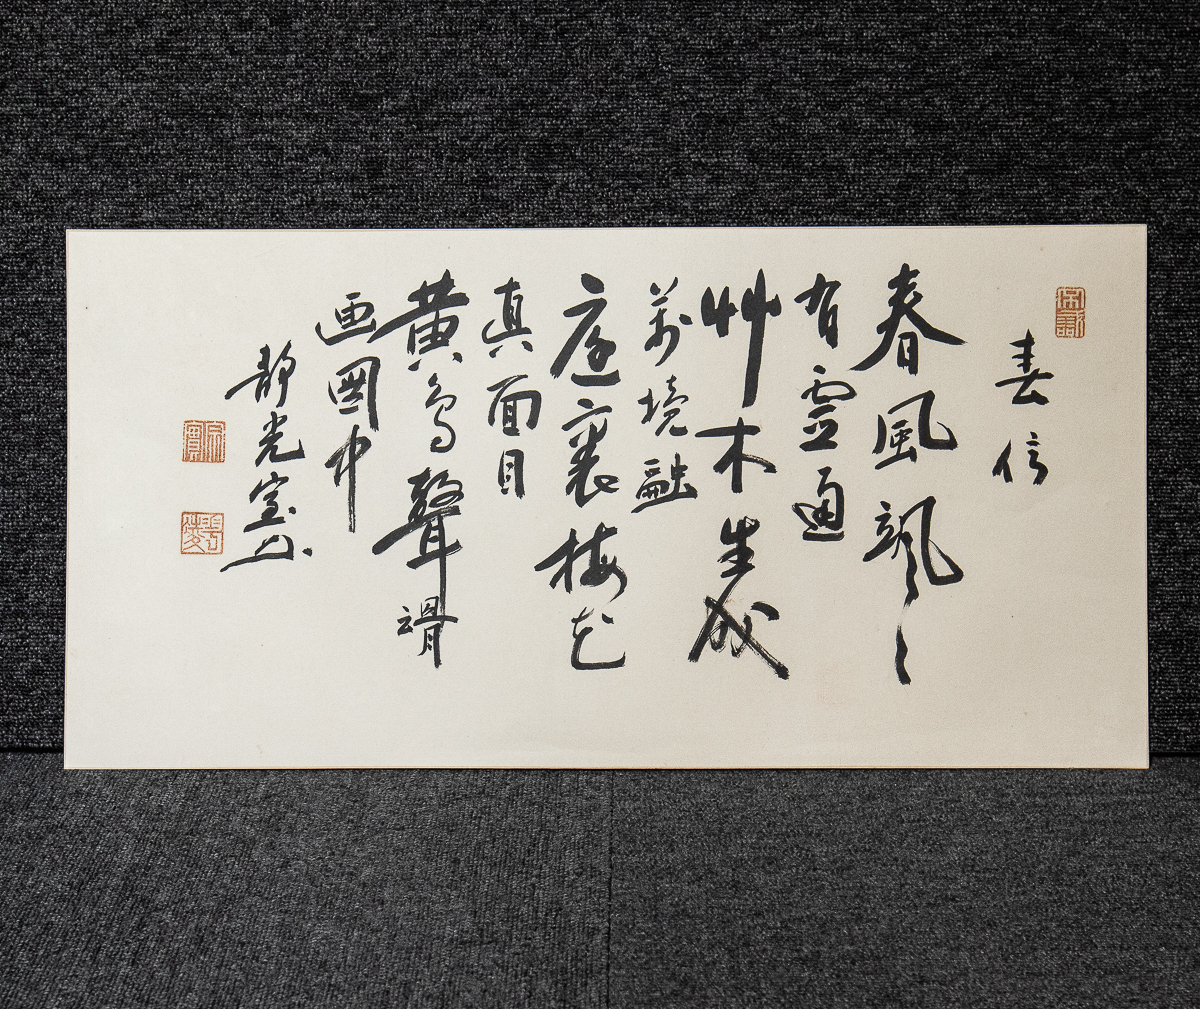 春信
春風颯々
有靈通
艸木生成
萬境融
庭裏梅花
真面目
黄鳥聲滑
画圖中
静光室